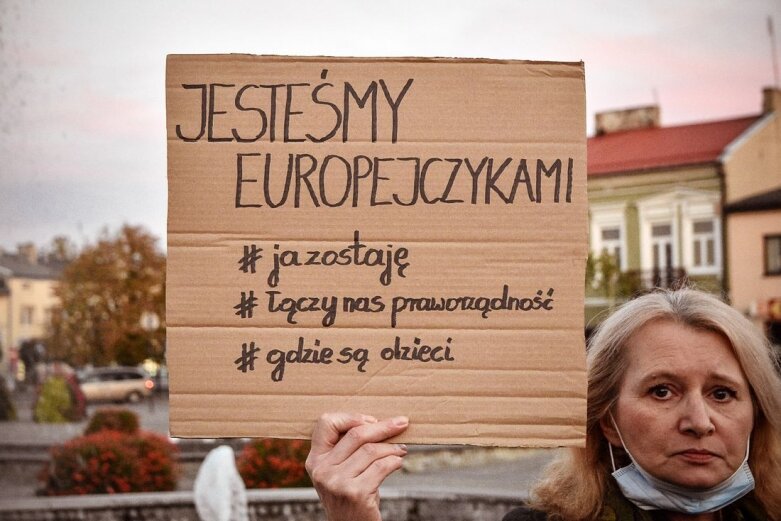 JESTEŚMY
EUROPEJCZYKAMI
# ja zostaję
# łączy nas praworządność
# gdzie są dzieci